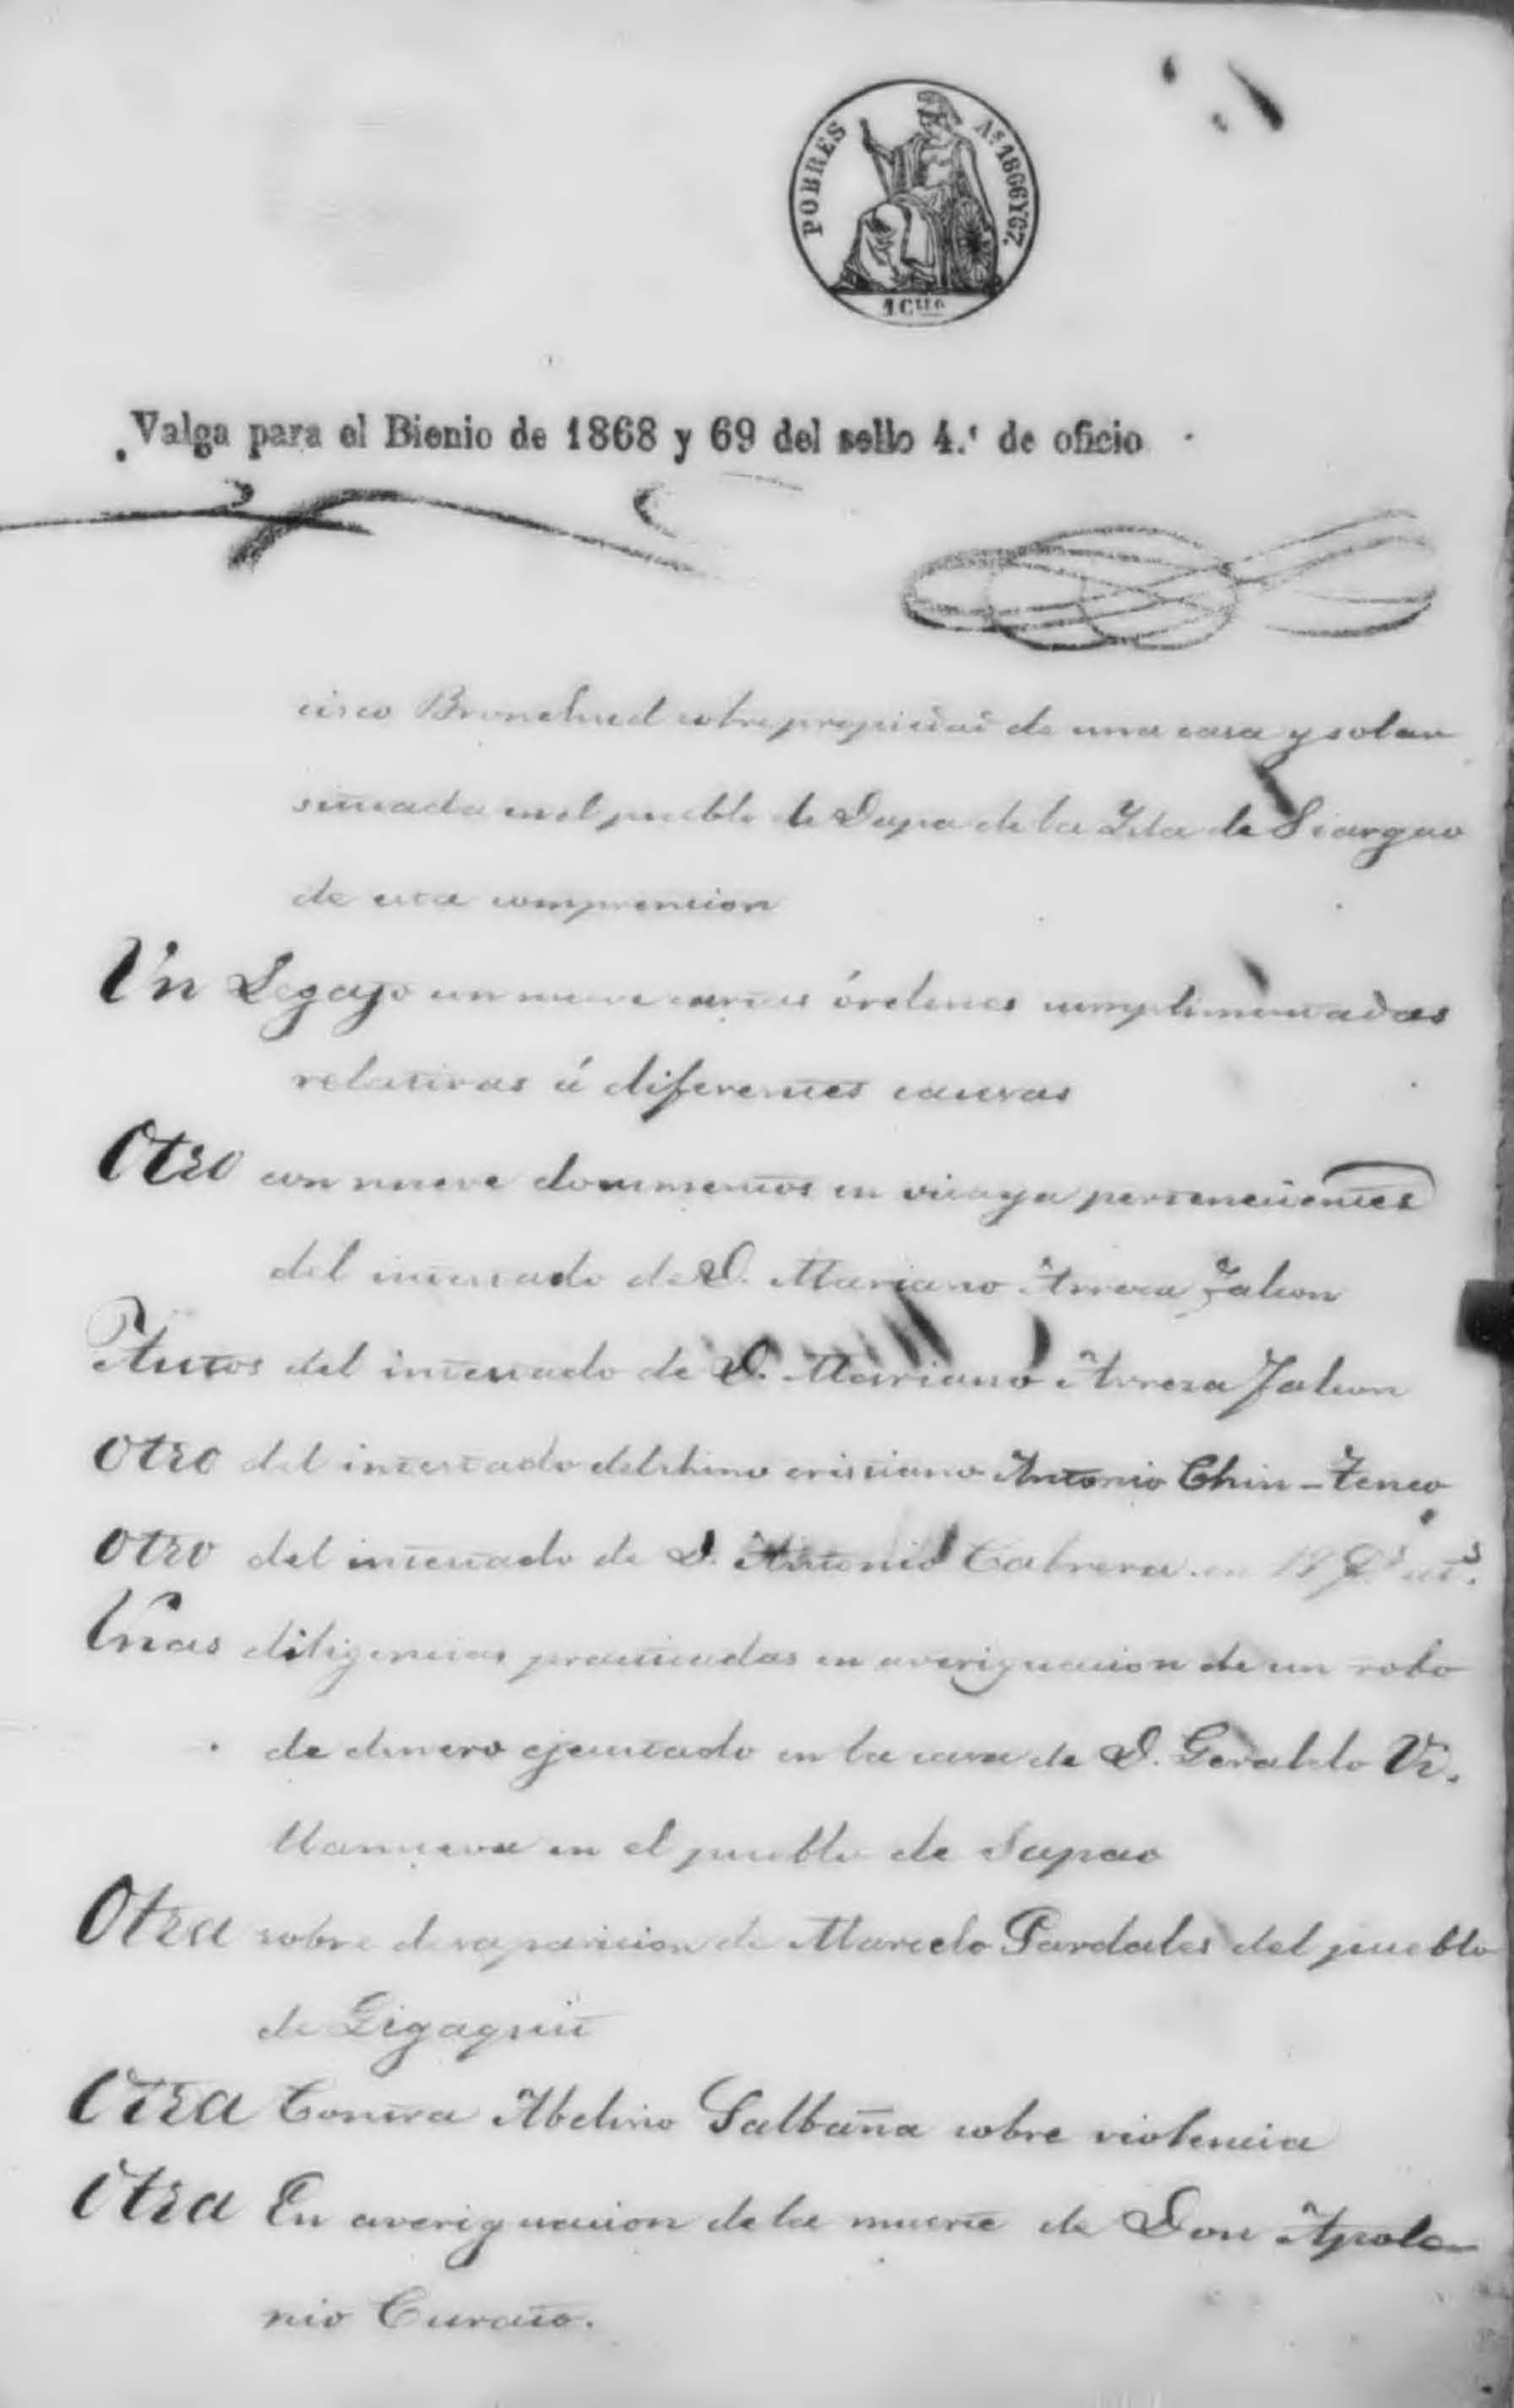 POBRES Aˢ 1866 Y 67.
1 Cᵗᵒ
Valga para el Bienio de 1868 y 69 del sello 4.º de oficio
cisco Bronchud sobre propiedad de una casa y solar
situada en el pueblo de Dapa de la Isla de Siargao
de esta comprension
Un Legajo con nueve cartas órdenes cumplimentadas
relativas á diferentes causas
Otro con nueve documentos en visaya pertenecientes
del intestado de D. Mariano Arreza Jalvon
Autos del intestado de D. Mariano Arreza Jalvon
Otro del intestado del chino cristiano Antonio Chin-Tenco
Otro del intestado de D. Antonio Cabrera en
Unas diligencias practicadas en averiguacion de un robo
de dinero ejecutado en la casa de D. Geraldo Vi-
llanueva en el pueblo de Sapao
Otra sobre desaparicion de Marcelo Pardales del pueblo
de Gigaquit
Otra Contra Abelino Galbaña sobre violencia
Otra En averiguacion de la muerte de Don Apolo-
nio Curato.